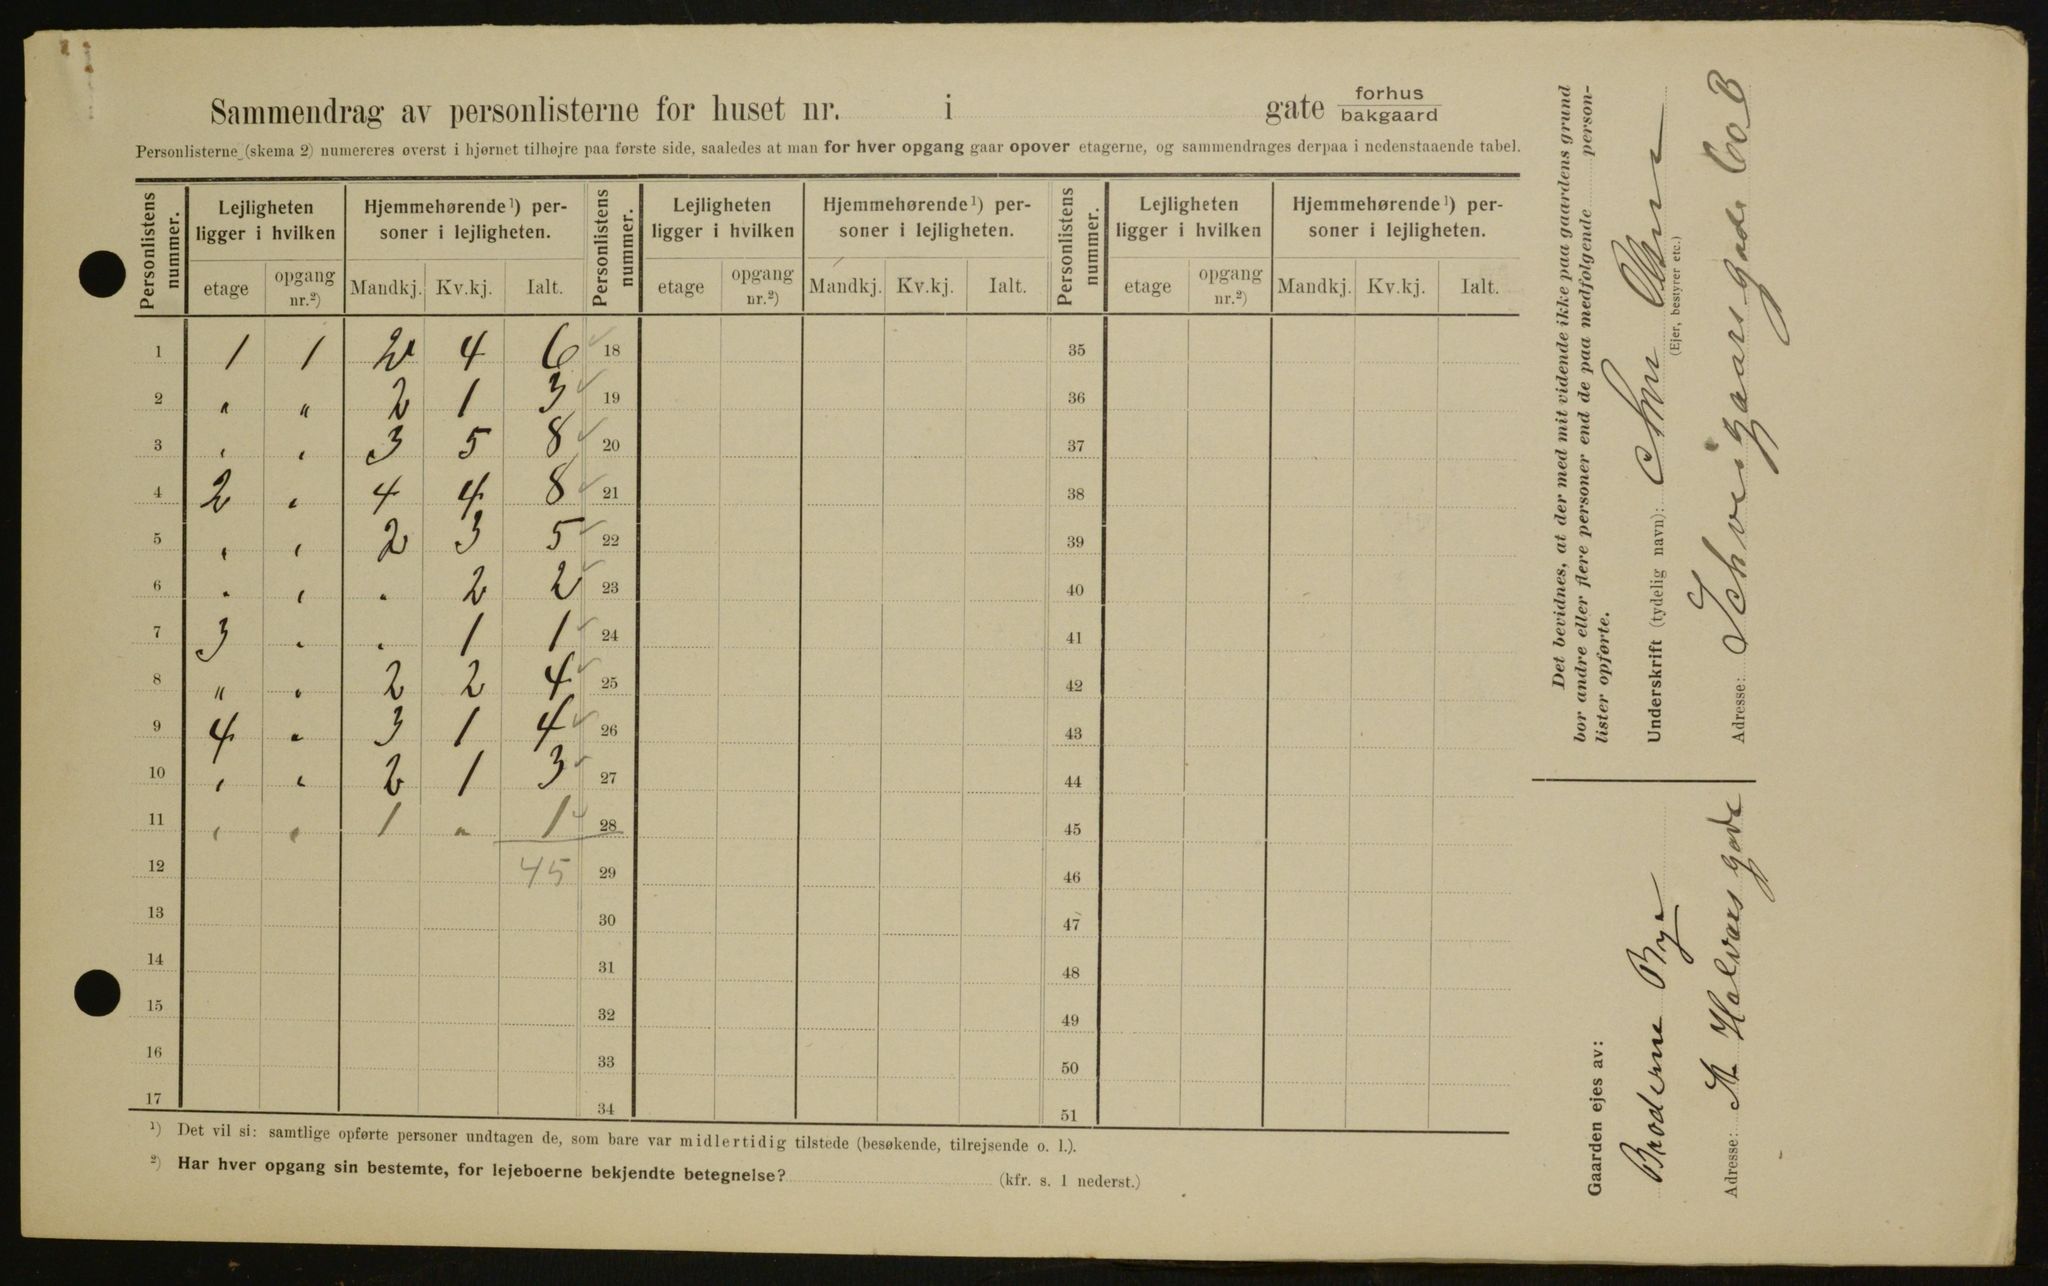 Sammendrag av personlisterne for huset nr. i gate forhus bakgaard
Personlisterne (skema 2) numereres øverst i hjørnet tilhøjre paa første side, saaledes at man for hver opgang gaar opover etagerne, og sammendrages derpaa i nedenstaaende tabel.
Personlistens nummer. Lejligheten ligger i hvilken Hjemmehørende ¹) personer i lejligheten. Personlistens nummer. Lejligheten ligger i hvilken Hjemmehørende ¹) personer i lejligheten. Personlistens nummer. Lejligheten ligger i hvilken Hjemmehørende ¹) personer i lejligheten.
etage opgang nr.²) Mandkj. Kv.kj. Ialt. etage opgang nr.²) Mandkj. Kv.kj. Ialt. etage opgang nr.²) Mandkj. Kv.kj. Ialt.
1 1 1 2 4 6 18 35
2 " " 2 1 3 19 36
3 " " 3 5 8 20 37
4 2 " 4 4 8 21 38
5 " " 2 3 5 22 39
6 " " " 2 2 23 40
7 3 " " 1 1 24 41
8 " " 2 2 4 25 42
9 4 " 3 1 4 26 43
10 " " 2 1 3 27 44
11 " " 1 " 1 28 45
12 45 29 46
13 30 47
14 31 48
15 32 49
16 33 50
17 34 51
¹) Det vil si: samtlige opførte personer undtagen de, som bare var midlertidig tilstede (besøkende, tilrejsende o. l.).
²) Har hver opgang sin bestemte, for lejeboerne bekjendte betegnelse? (kfr. s. 1 nederst.)
Det bevidnes, at der med mit vidende ikke paa gaardens grund
bor andre eller flere personer end de paa medfølgende person-
lister opførte.
Underskrift (tydelig navn):
(Ejer, bestyrer etc.)
Adresse: Schveigaardsgade 60 B
Gaarden ejes av:
Brøderne Bye
Adresse: St Halvars gade